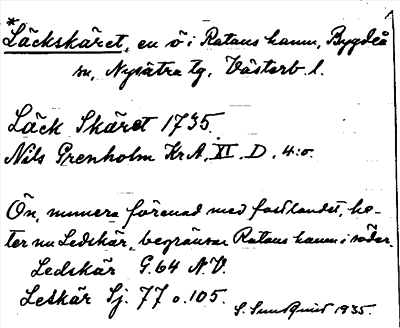 *Läckskäret, en ö i Ratans hamn, Bygdeå
sn, Nysätra tg, Västerb. l.
Läck Skäret 1735.
Nils Grenholm Kr A, XI, D, 4:o.
Ön, numera förenad med fastlandet, he-
ter nu Ledskär, begränsar Ratans hamn i söder.
Ledskär G. 64 N.V.
Letkär Sj. 77 o. 105.
S. Sundqvist 1935.